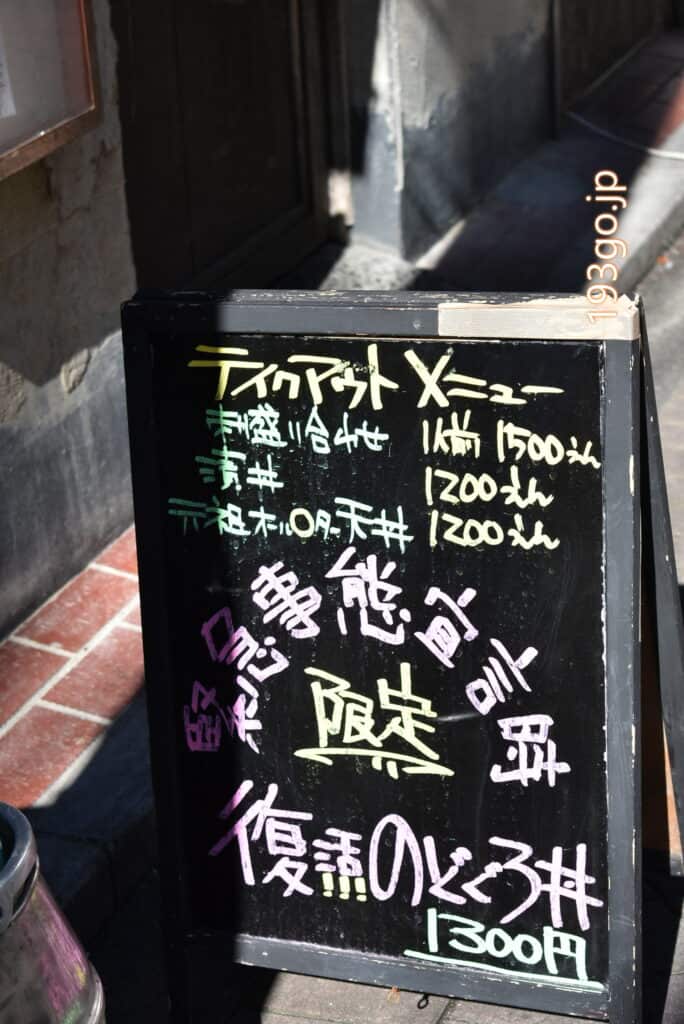 193go.jp
テイクアウト メニュー
刺盛り合わせ 1人前 1500えん
漬丼 1200えん
元祖 1200えん
緊急事態宣言時
限定
復活!!!のどぐろ丼
1300円